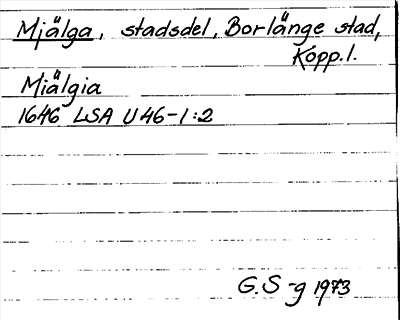 Mjälga, stadsdel, Borlänge stad,
Kopp.l.
Miälgia
1646 LSA U46-1:2
G.S-g 1973